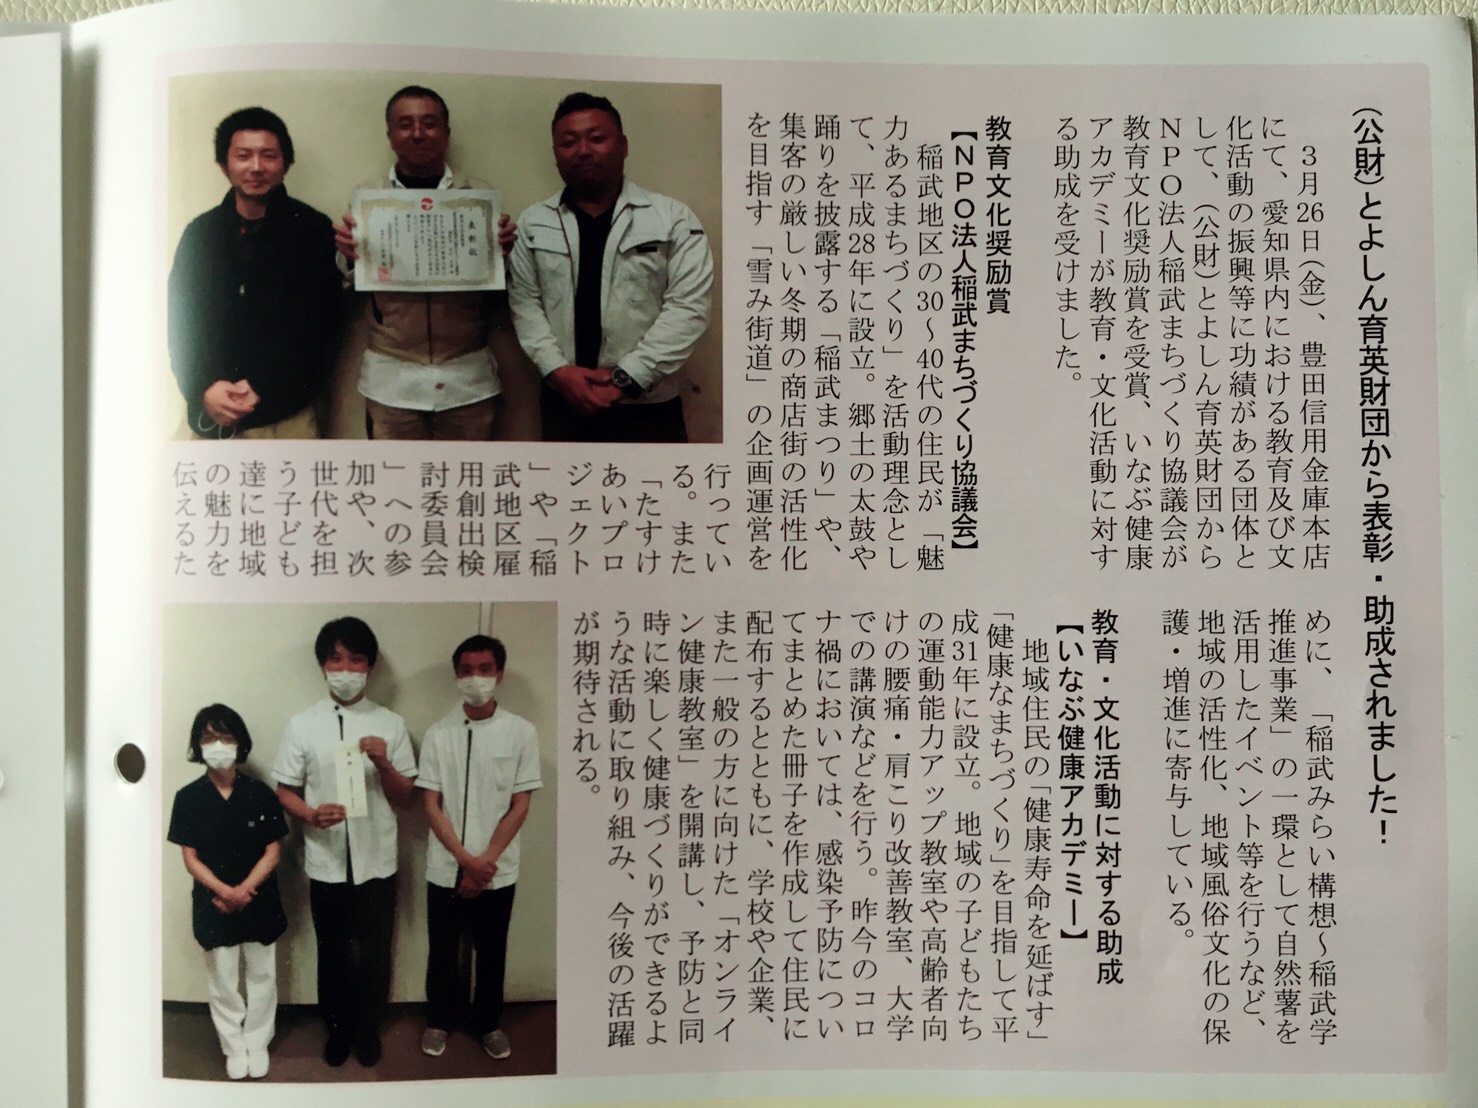 (公財)とよしん育英財団から表彰・助成されました!
3月26日(金)、豊田信用金庫本店
にて、愛知県内における教育及び文
化活動の振興等に功績がある団体と
して、(公財)とよしん育英財団から
NPO法人稲武まちづくり協議会が
教育文化奨励賞を受賞、いなぶ健康
アカデミーが教育・文化活動に対す
る助成を受けました。
教育文化奨励賞
【NPO法人稲武まちづくり協議会】
稲武地区の30〜40代の住民が「魅
力あるまちづくり」を活動理念とし
て、平成28年に設立。郷土の太鼓や
踊りを披露する「稲武まつり」や、
集客の厳しい冬期の商店街の活性化
を目指す「雪み街道」の企画運営を
行ってい
る。また
「たすけ
あいプロ
ジェクト
」や「稲
武地区雇
用創出検
討委員会
」への参
加や、次
世代を担
う子ども
達に地域
の魅力を
伝えるた
めに、「稲武みらい構想〜稲武学
推進事業」の一環として自然薯を
活用したイベント等を行うなど、
地域の活性化、地域風俗文化の保
護・増進に寄与している。
教育・文化活動に対する助成
【いなぶ健康アカデミー】
地域住民の「健康寿命を延ばす」
「健康なまちづくり」を目指して平
成31年に設立。地域の子どもたち
の運動能力アップ教室や高齢者向
けの腰痛・肩こり改善教室、大学
での講演などを行う。昨今のコロ
ナ禍においては、感染予防につい
てまとめた冊子を作成して住民に
配布するとともに、学校や企業、
また一般の方に向けた「オンライ
ン健康教室」を開講し、予防と同
時に楽しく健康づくりができるよ
うな活動に取り組み、今後の活躍
が期待される。
表彰状